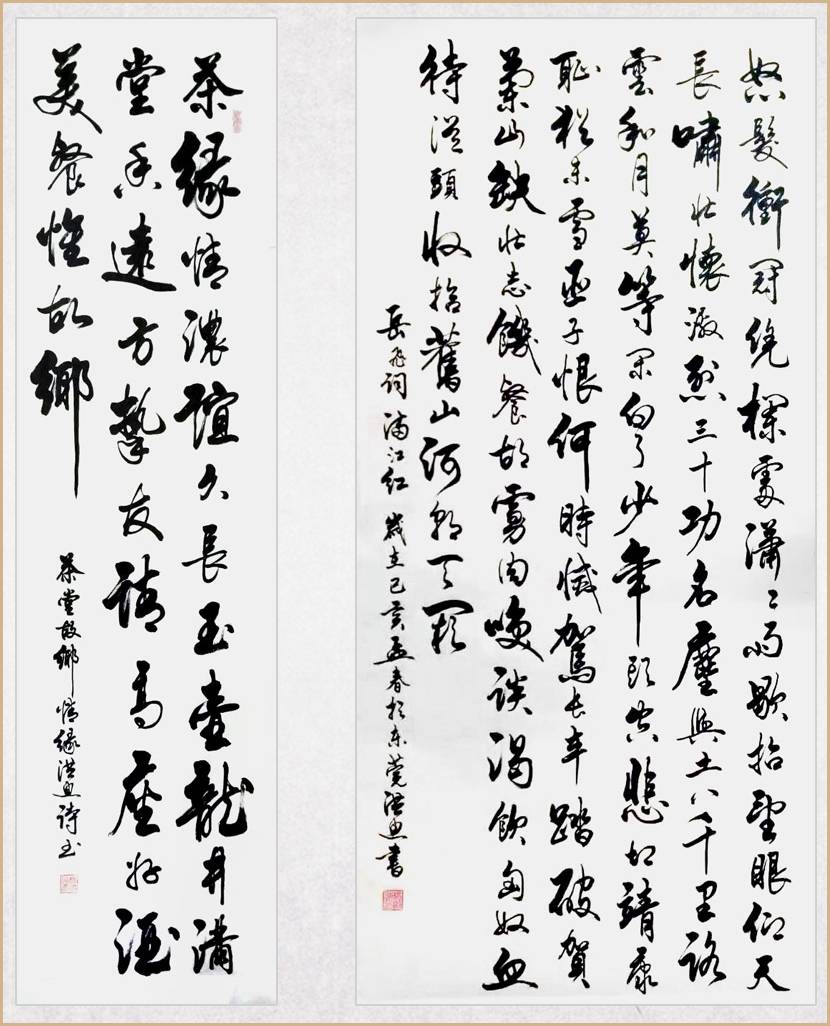 怒髮衝冠凭欄處瀟〻雨歇抬望眼仰天
長嘯壯懷激烈三十功名塵與土八千里路
雲和月莫等閑白了少年頭空悲切靖康
恥猶未雪臣子恨何時憾駕長車踏破賀
蘭山缺壯志饑餐胡虜肉咲談渴飲匈奴血
待從頭收拾舊山河朝天闕
岳飛詞滿江紅 歲在己亥孟春於東莞洪書
茶緣情濃誼久長玉壺龍井滿
堂香遠方摯友請高座好酒
美餐惟故鄉
茶堂故鄉情緣洪詩書